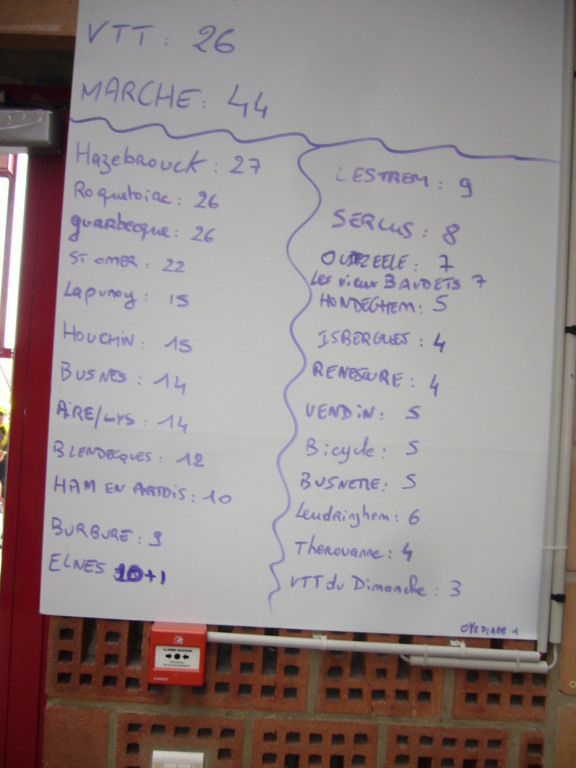 VTT : 26
MARCHE : 44
Hazebrouck : 27
Roquetoire : 26
guarbecque : 26
ST OMER : 22
Lapugnoy : 15
HOUCHIN : 15
BUSNES : 14
AIRE/LYS : 14
BLENDECQUES : 12
HAM EN ARTOIS : 10
BURBURE : 9
ELNES 10+1
LESTREM : 9
SERCUS : 8
OUDEZEELE : 7
Les vieux BAUDETS 7
HONDEGHEM : 5
ISBERGUES : 4
RENESCURE : 4
VENDIN : 5
Bicycle : 5
BUSNETTE : 5
Leudringhem : 6
Therouanne : 4
VTT du Dimanche : 3
OYE PLAGE 1